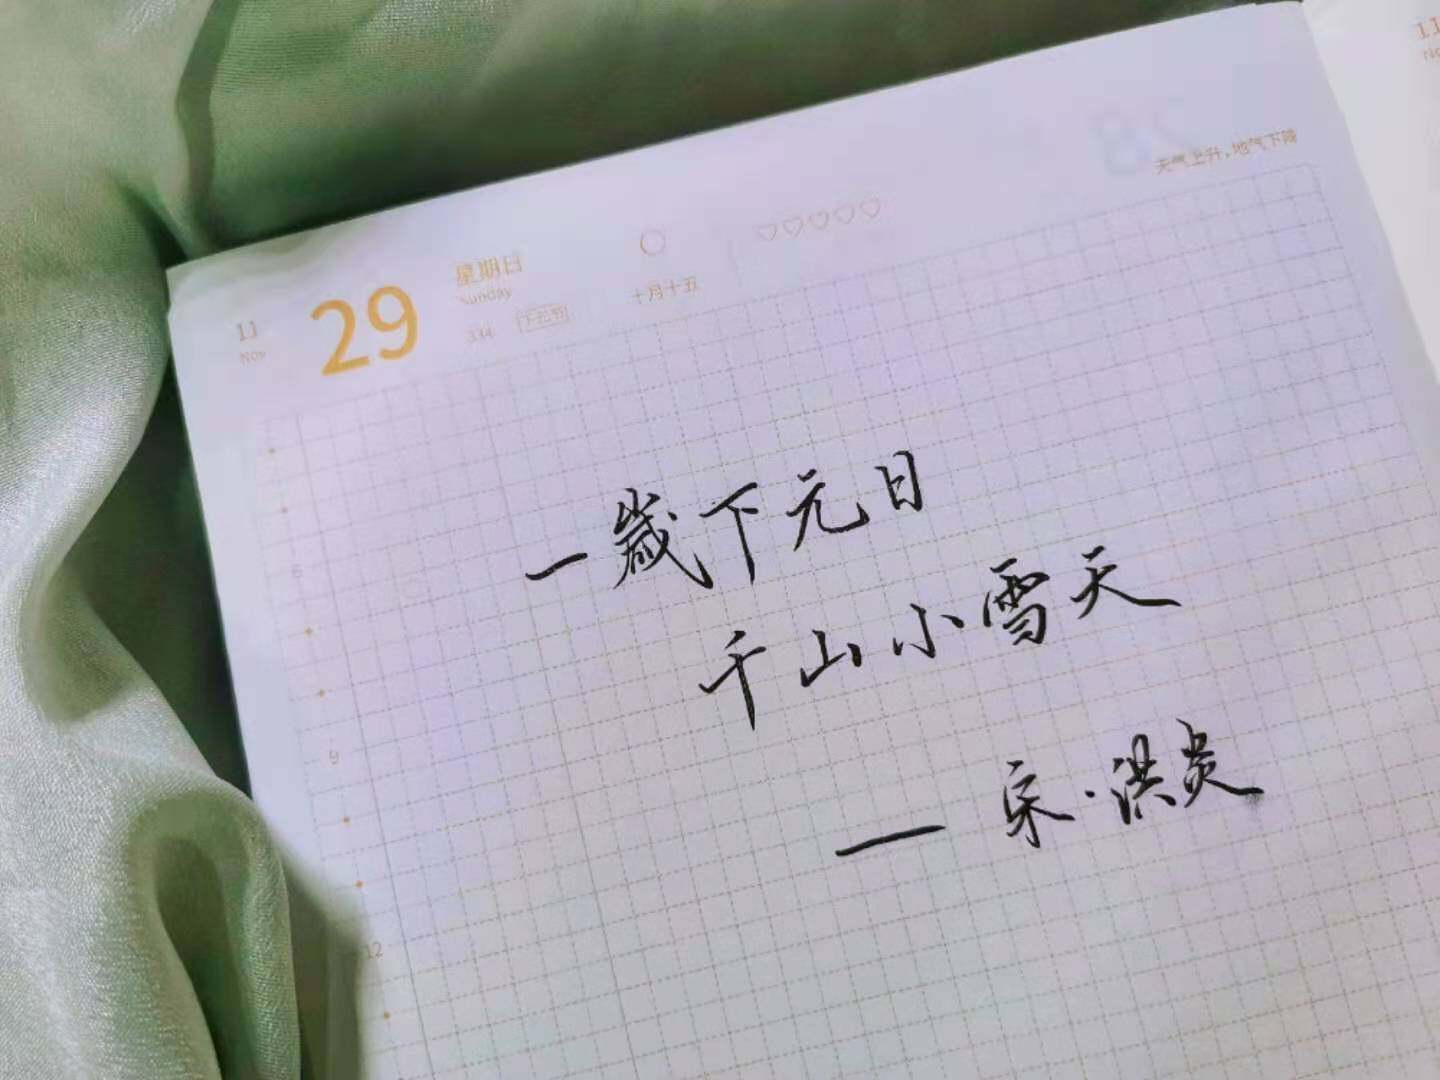 天气上升，地气下降
11
Nov
29
星期日
Sunday
334
下元节
十月十五
一歲下元日
千山小雪天
— 宋·洪炎
6
9
12